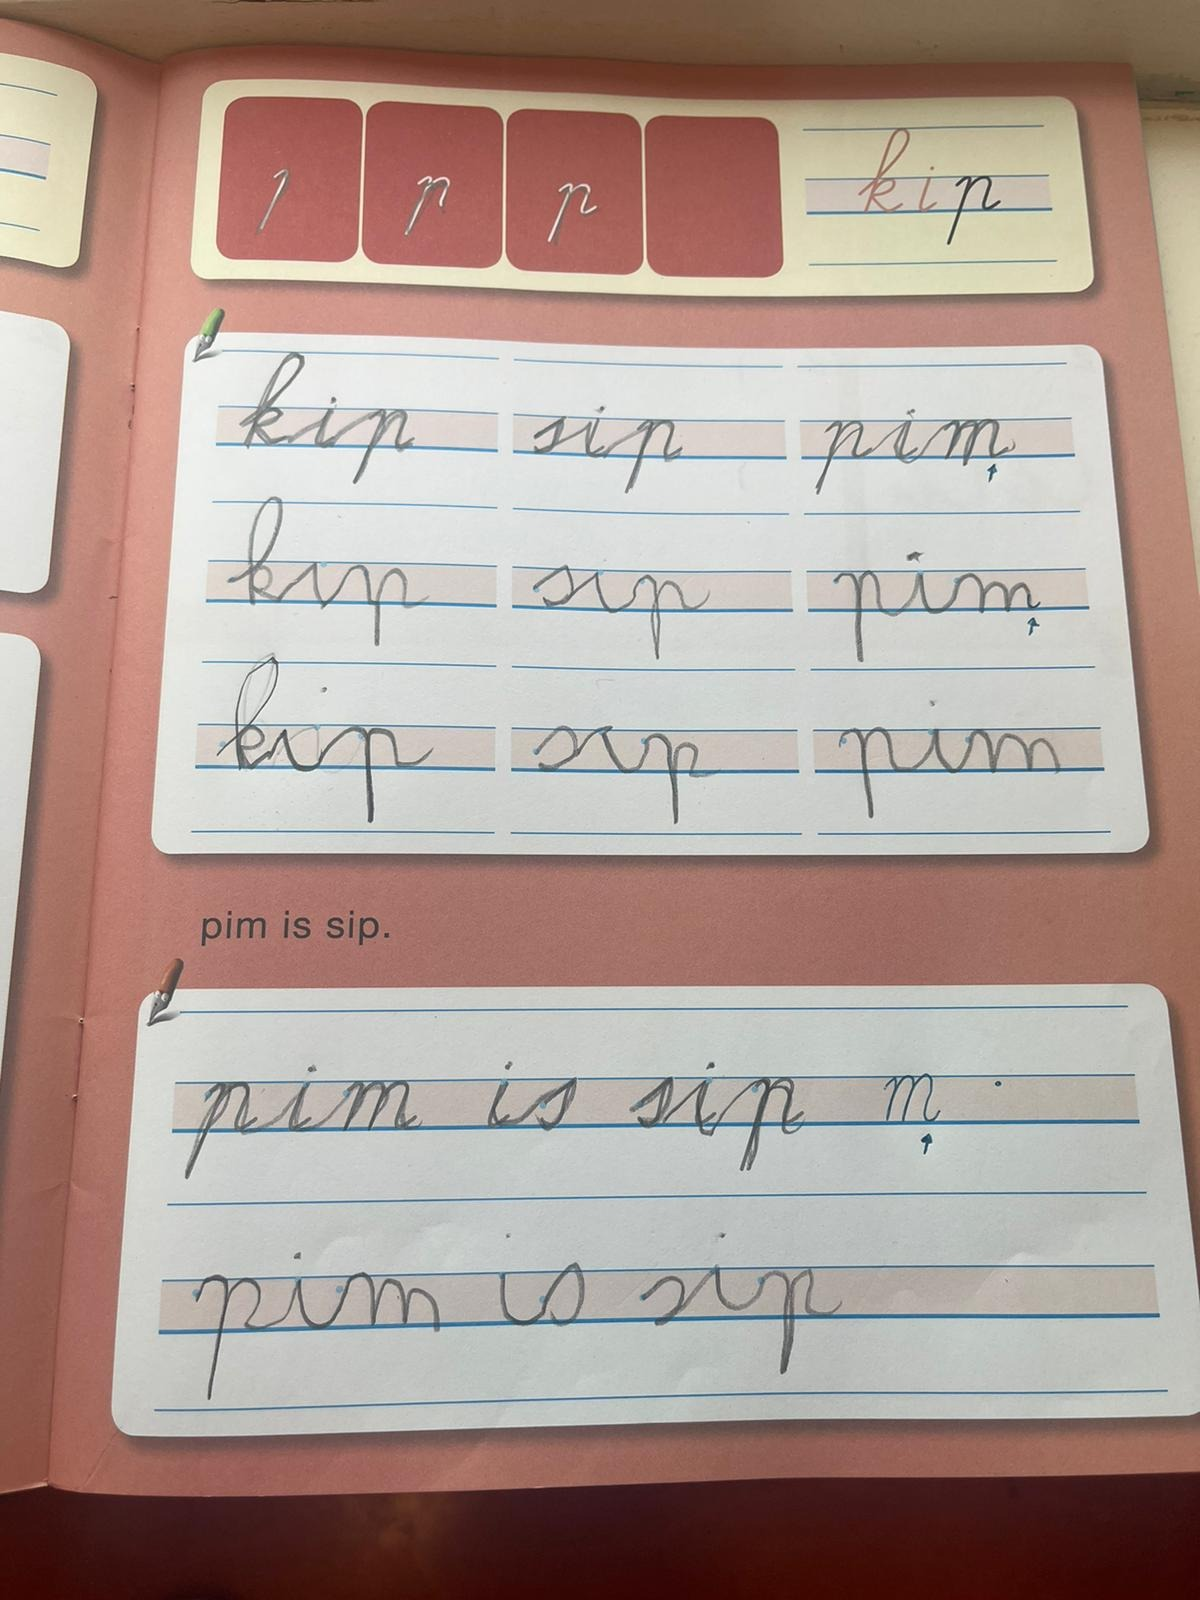 p p kip
kip sip pim
kip sip pim
kip sip pim
pim is sip.
pim is sip m .
pim is sip